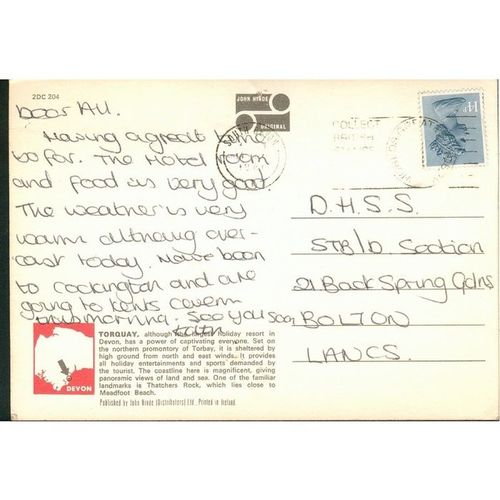 2DC 204
Dear All.
Having a great time
so far. The Hotel room
and food is very good.
The weather is very
warm although over-
cast today. Have been
to cockington and are
going to Kents cavern
this morning. See you soon
JOHN HINDE
ORIGINAL
COLLECT
BRITISH
STAMPS
D.H.S.S.
STB/b Section
21 Back Spring Gdns
BOLTON
LANCS.
DEVON
TORQUAY, although the largest holiday resort in
Devon, has a power of captivating everyone. Set on
the northern promontory of Torbay, it is sheltered by
high ground from north and east winds. It provides
all holiday entertainments and sports demanded by
the tourist. The coastline here is magnificent, giving
panoramic views of land and sea. One of the familiar
landmarks is Thatchers Rock, which lies close to
Meadfoot Beach.
Published by John Hinde (Distributors) Ltd., Printed in Ireland.